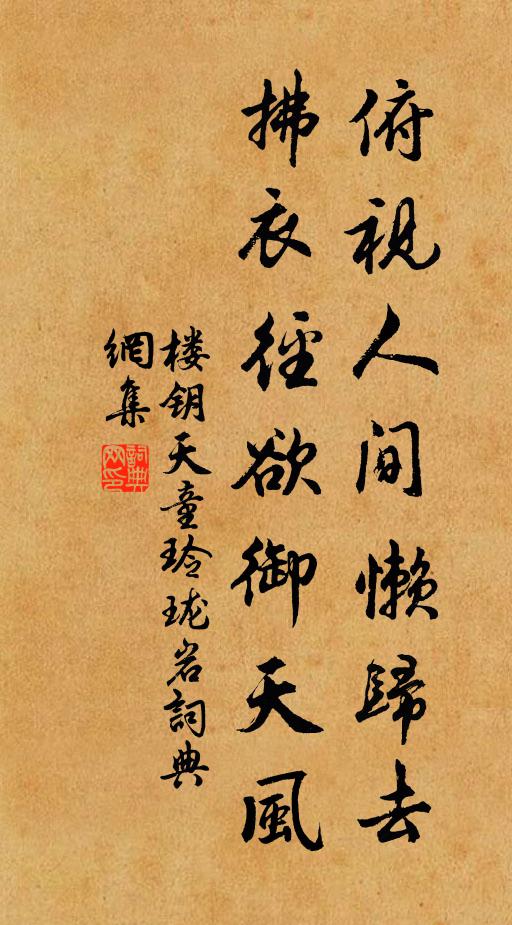 俯視人间懶歸去
拂衣徑欲御天風
楼钥天童玲珑岩詞典
網集
詞典
网印